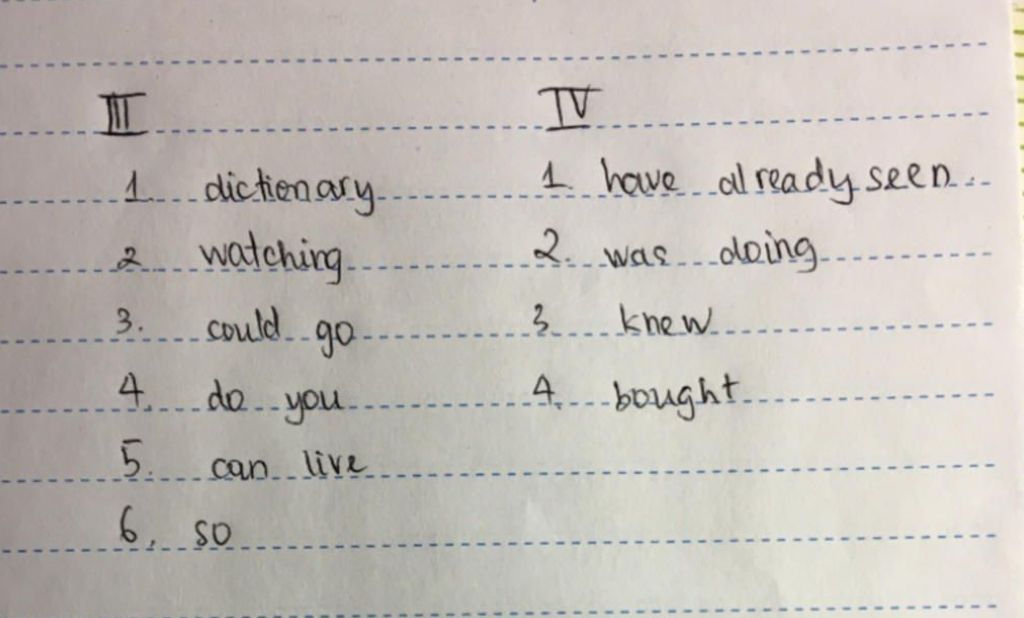 III
1. dictionary
2 watching
3. could go
4. do you
5. can live
6. so
IV
1. have already seen.
2. was doing
3 knew
4. bought